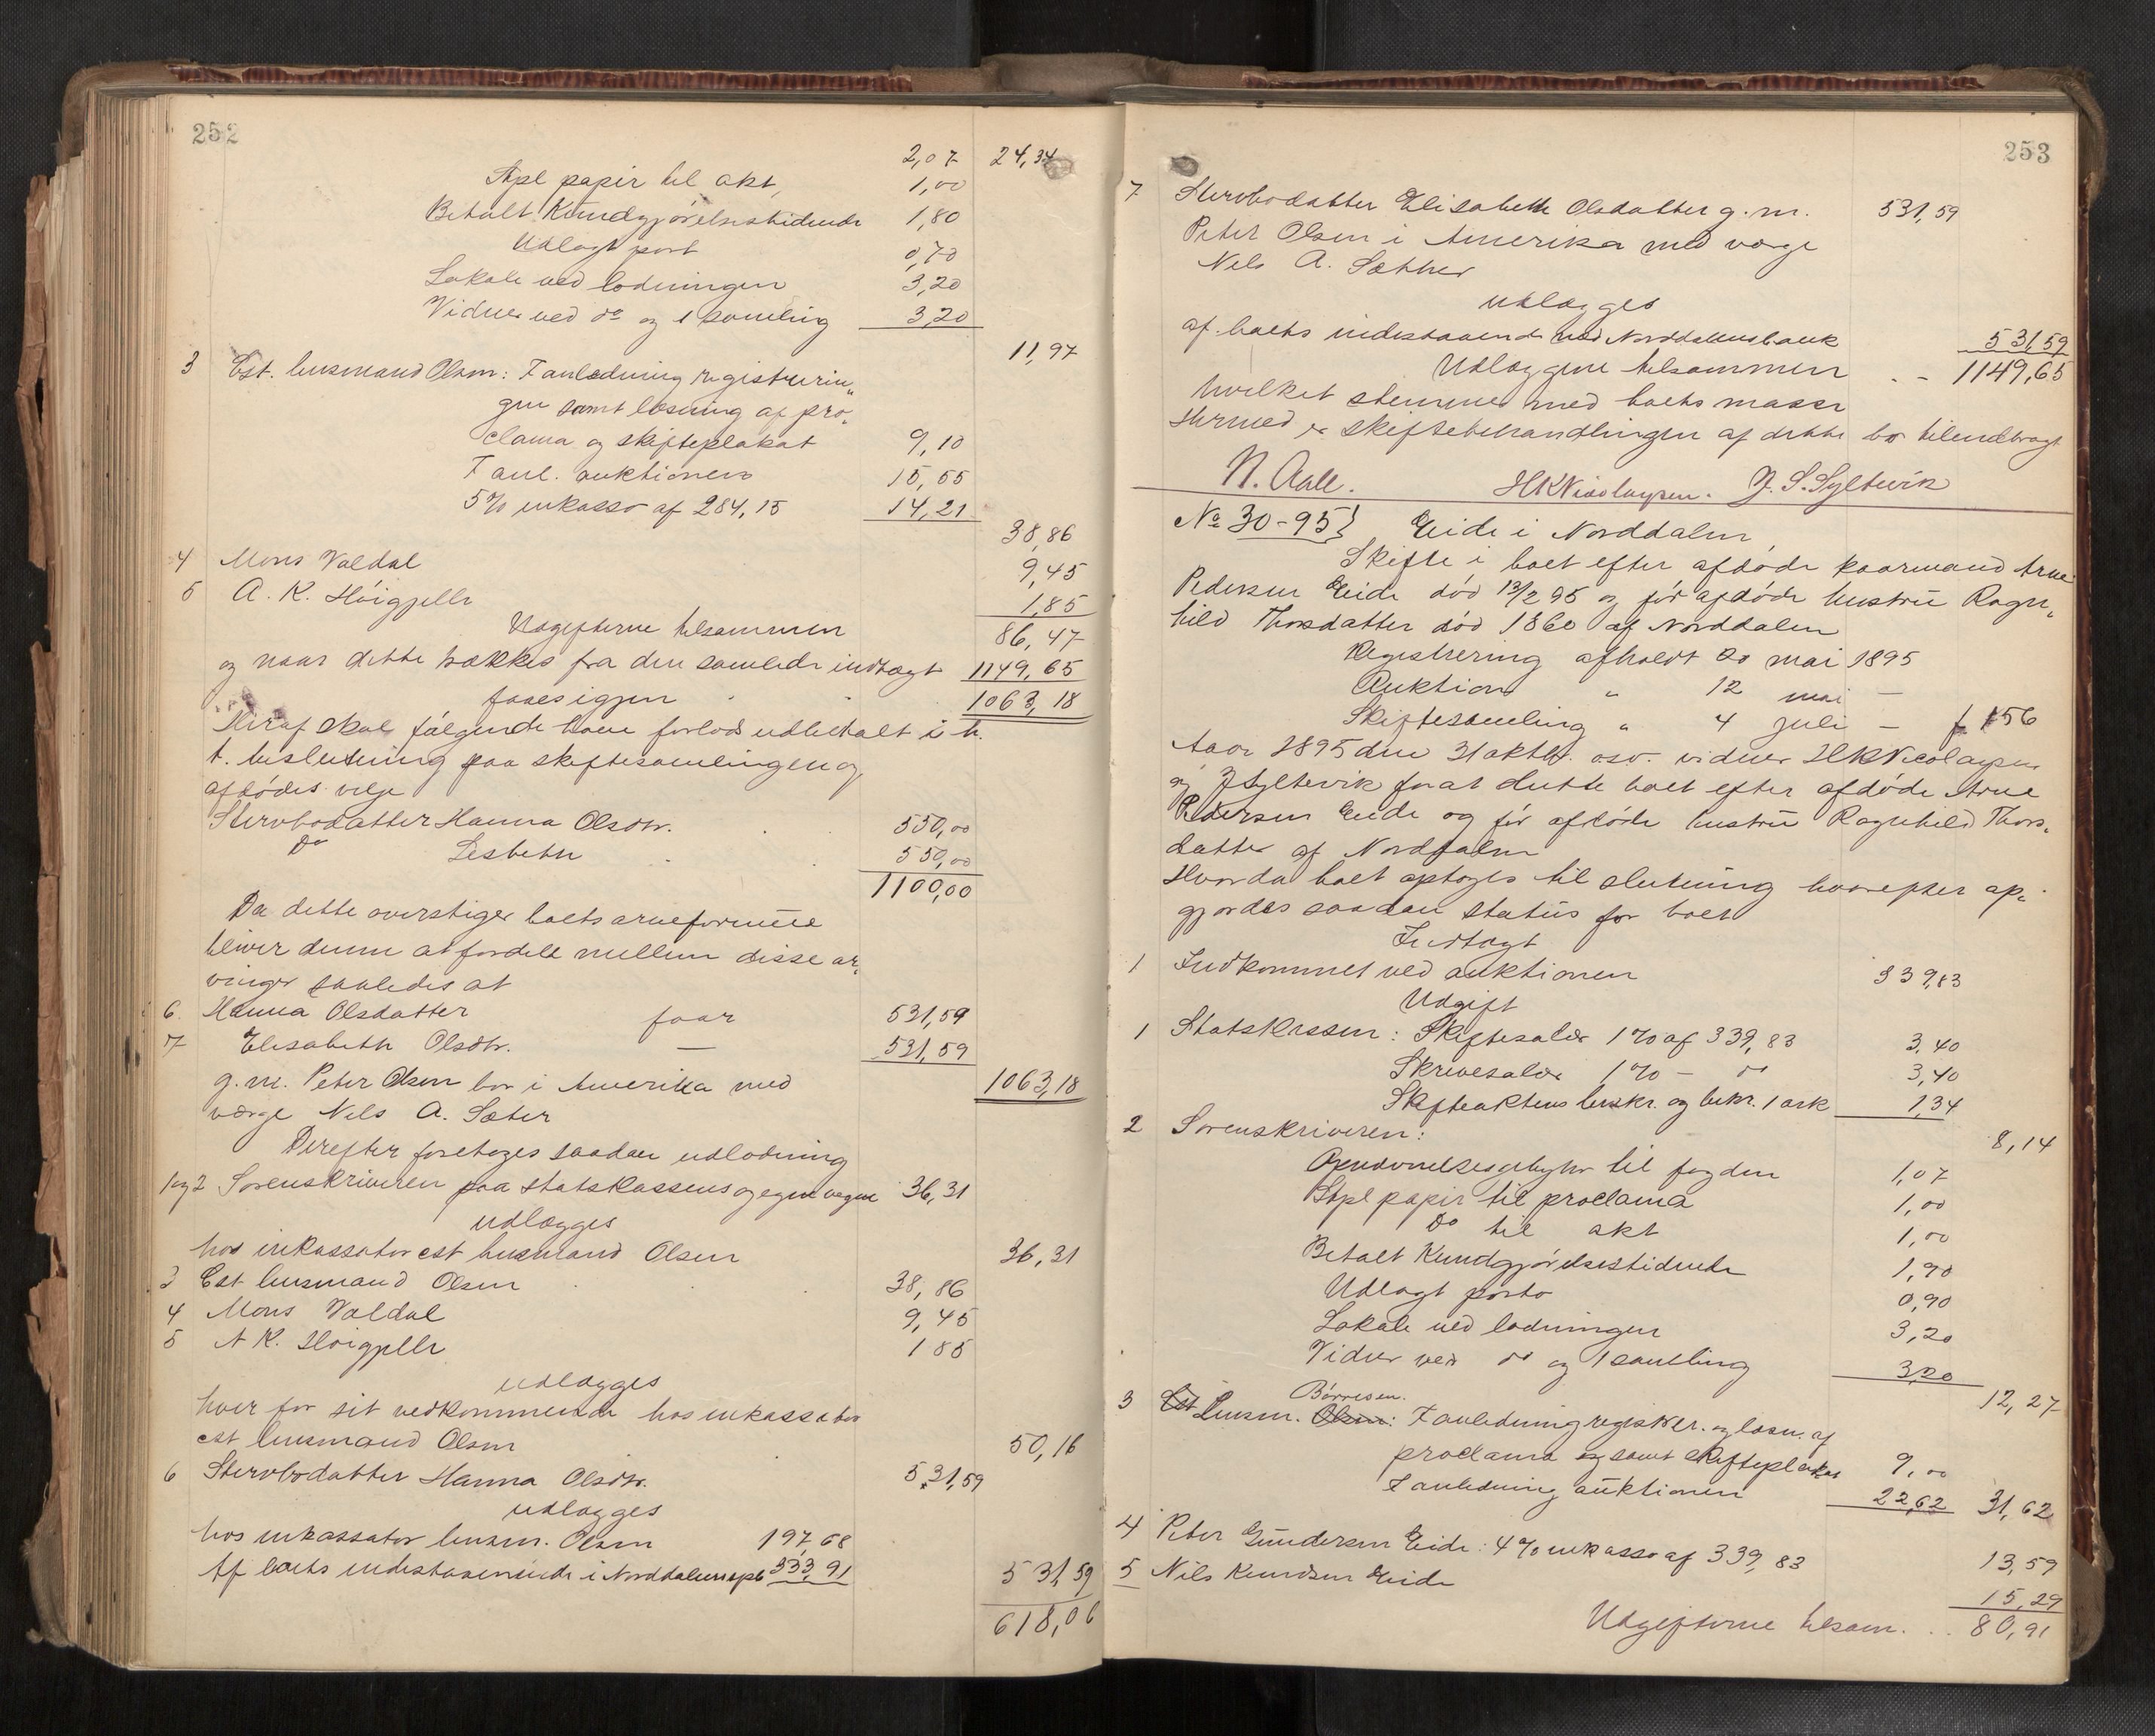 252
2,07 24,34
Stpl papir til akt, 1,00
Betalt Kundgjørelsestidende 1,80
Udlagt port 0,70
Lokale ved lodningen 3,20
Vidner ved do og 1 samling 3,20
11,97
3 Est. lensmand Olsen: I anledning registrerin„
gen samt læsning af pro„
clama og skifteplakat 9,10
I anl. auktionen 15,55
5% inkasso af 284,15 14,21
38,86
4 Mons Valdal 9,45
5 A. K. Høigjelle 1,85
Udgifterne tilsammen 86,47
og naar dette trækkes fra den samlede indtægt 1149,65
faaes igjen 1063,18
Heraf skal følgende have forlods udbetalt i h.
t. beslutning paa skiftesamlingen og
afdødes vilje
Stervbodatter Hanna Olsdtr. 550,00
Do Lisbeth 550,00
1100,00
Da dette overstiger boets arveformue
bliver denne at fordele mellem disse ar„
vinger saaledes at
6. Hanna Olsdatter faar 531,59
7 Elisabeth Olsdtr. — 531,59
g. m. Peter Olsen bor i Amerika med 1063,18
værge Nels A. Sæter
Derefter foretoges saadan udlodning
1 og 2 Sorenskriveren paa statskassens og egne vegne 36,31
udlægges
hos inkassator est lensmand Olsen 36,31
3 Est lensmand Olsen 38,86
4 Mons Valdal 9,45
5 A K. Høigjelle 1 85
udlægges
hver for sit vedkommende hos inkassator
est lensmand Olsen 50,16
6 Stervbodatter Hanna Olsdtr. 531,59
udlægges
hos inkassator lensm. Olsen 197,68
Af boets indestaaende i Norddalens spb 333,91 531,59
618,06
253
7 Stervbodatter Elisabeth Olsdatter g. m. 531,59
Peter Olsen i Amerika med værge
Nels A. Sæther
udlægges
af boets indestaaende ved Norddalens bank 531,59
Udlæggene tilsammen . – 1149,65
hvilket stemmer med boets masse
Hermed er skiftebehandlingen af dette bo tilendebragt
N. Aall. HKNicolaysen. J. S. Syltevik
No 30-95} Eide i Norddalen
Skifte i boet efter afdøde kaarmand Arne
Pedersen Eide død 13/2 95 og før afdøde hustru Ragn„
hild Thorsdatter død 1860 af Norddalen
Registrering afholdt 20 mai 1895
Auktion „ 12 mai –
Skiftesamling „ 4 juli – f 156
Aar 1895 den 31 oktbr. osv. vidner HKNicolaysen
og J Syltevik for at slutte boet efter afdøde Arne
Pedersen Eide og før afdøde hustru Ragnhild Thors„
datter af Norddalen
Hvorda boet optoges til slutning hvorefter op„
gjordes saadan status for boet
Indtægt
1 Indkommet ved auktionen 339,83
Udgift
1 Statskassen: Skiftesalær 1% af 339,83 3,40
Skrivesalær 1% – do 3,40
Skifteaktens beskr. og bekr. 1 ark 1,34
8,14
2 Sorenskriveren:
Opnævnelsesgebyhr til fogden 1,07
Stpl papir til proclama 1,00
Do til akt 1,00
Betalt Kundgjørelsestidende 1,90
Udlagt porto 0,90
Lokale ved lodningen 3,20
Vidner ved do og 1 samling 3,20
12,27
Børresen.
3 Est Lensm. Olsen: I anledning registrer. og læsn. af
proclama og samt skifteplakat 9,00
I anledning auktionen 22,62 31,62
4 Peter Gundersen Eide: 4% inkasso af 339,83 13,59
5 Nils Knudsen Eide 15,29
Udgifterne tilsam. . . 80,91